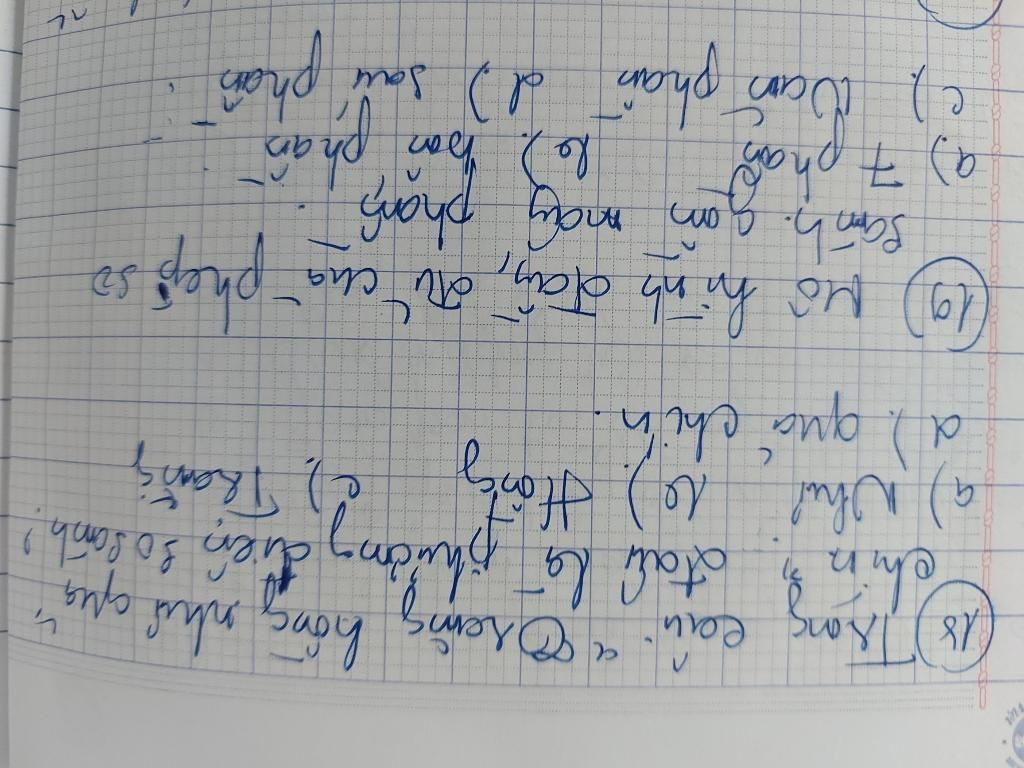 18 Trong câu: "Trăng hồng như quả
chín", đâu là phương diện so sánh?
a) Như b) Hồng c) Trăng
d) quả chín.
19 Mô hình đầy đủ của phép so
sánh gồm mấy phần.
a) 7 phần b) bốn phần
c) Năm phần d) sáu phần